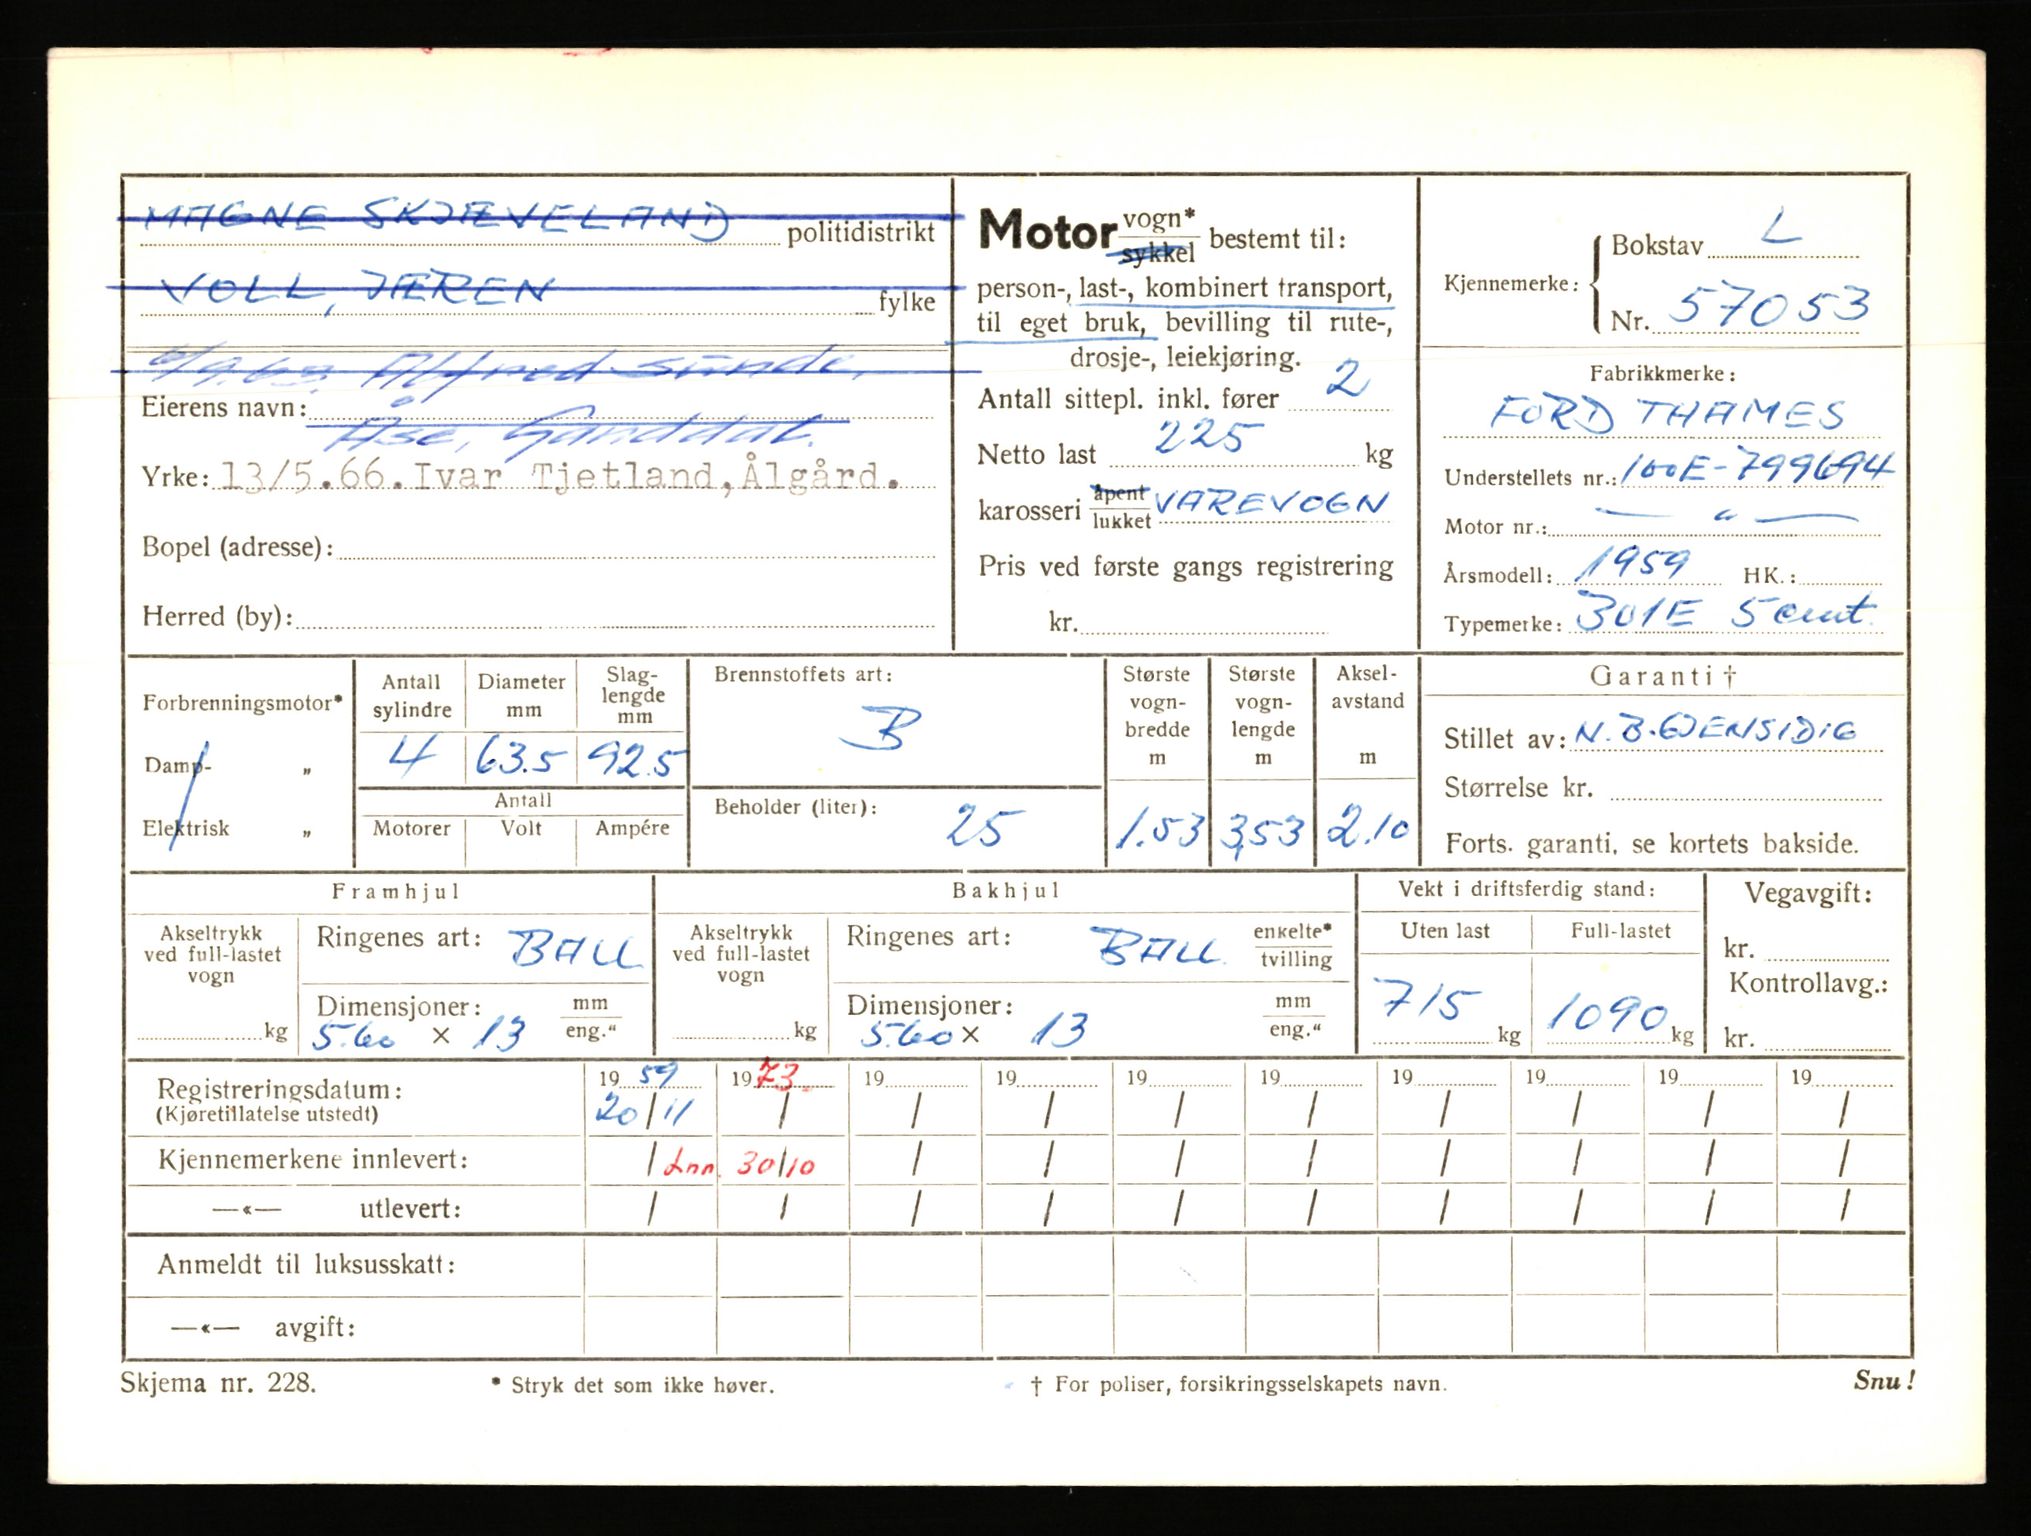 MAGNE SKJÆVELAND politidistrikt
VOLL, JÆREN fylke
6/9.63. Alfred Sunde,
Eierens navn:
Åse, Ganddal.
Yrke: 13/5.66. Ivar Tjetland, Ålgård.
Bopel (adresse):
Herred (by):
Motor vogn*
sykkel bestemt til:
person-, last-, kombinert transport,
til eget bruk, bevilling til rute-,
drosje-, leiekjøring.
Antall sittepl. inkl. fører 2
Netto last 225 kg
karosseri åpent
lukket VAREVOGN
Pris ved første gangs registrering
kr.
Kjennemerke: Bokstav L
Nr. 57053
Fabrikkmerke:
FORD THAMES
Understellets nr.: 100E-799694
Motor nr.: — " —
Årsmodell: 1959 HK.:
Typemerke: 301E 5 cwt.
Forbrenningsmotor*
Damp- „
Elektrisk „
Antall sylindre 4
Diameter mm 63.5
Slaglengde mm 92.5
Antall
Motorer Volt Ampére
Brennstoffets art:
B
Beholder (liter): 25
Største vognbredde m 1.53
Største vognlengde m 3,53
Akselavstand m 2.10
Garanti †
Stillet av: N.B.GJENSIDIG
Størrelse kr.
Forts. garanti, se kortets bakside.
Framhjul
Akseltrykk
ved full-lastet
vogn
kg
Ringenes art: BALL
Dimensjoner: mm
5.60 × 13 eng."
Bakhjul
Akseltrykk
ved full-lastet
vogn
kg
Ringenes art: BALL enkelte*
tvilling
Dimensjoner: mm
5.60 × 13 eng."
Vekt i driftsferdig stand:
Uten last Full-lastet
715 kg 1090 kg
Vegavgift:
kr.
Kontrollavg.:
kr.
Registreringsdatum: 19 59 19 73 19 19 19 19 19 19 19 19
(Kjøretillatelse utstedt) 20/11 / / / / / / / / /
Kjennemerkene innlevert: / Inn. 30/10 / / / / / / / /
—«— utlevert: / / / / / / / / / /
Anmeldt til luksusskatt:
—«— avgift:
Skjema nr. 228. * Stryk det som ikke høver. † For poliser, forsikringsselskapets navn. Snu!